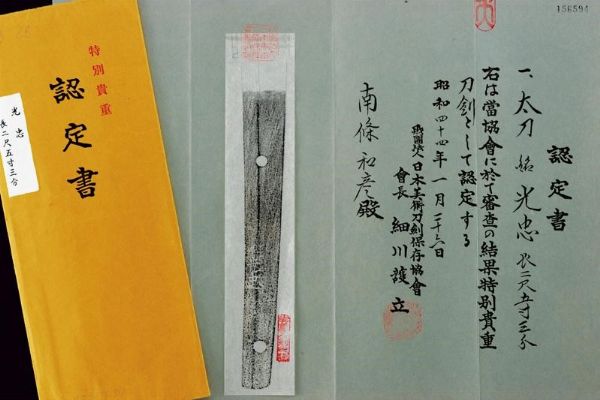 156594
認定書
一、太刀 銘 光忠 長二尺五寸三分
右は當協會に於て審査の結果特別貴重
刀劍として認定する
昭和四十四年一月二十六日
財團法人日本美術刀劍保存協會
會長 細川護立
南條和彦殿
特別貴重
認定書
光忠
長二尺五寸三分